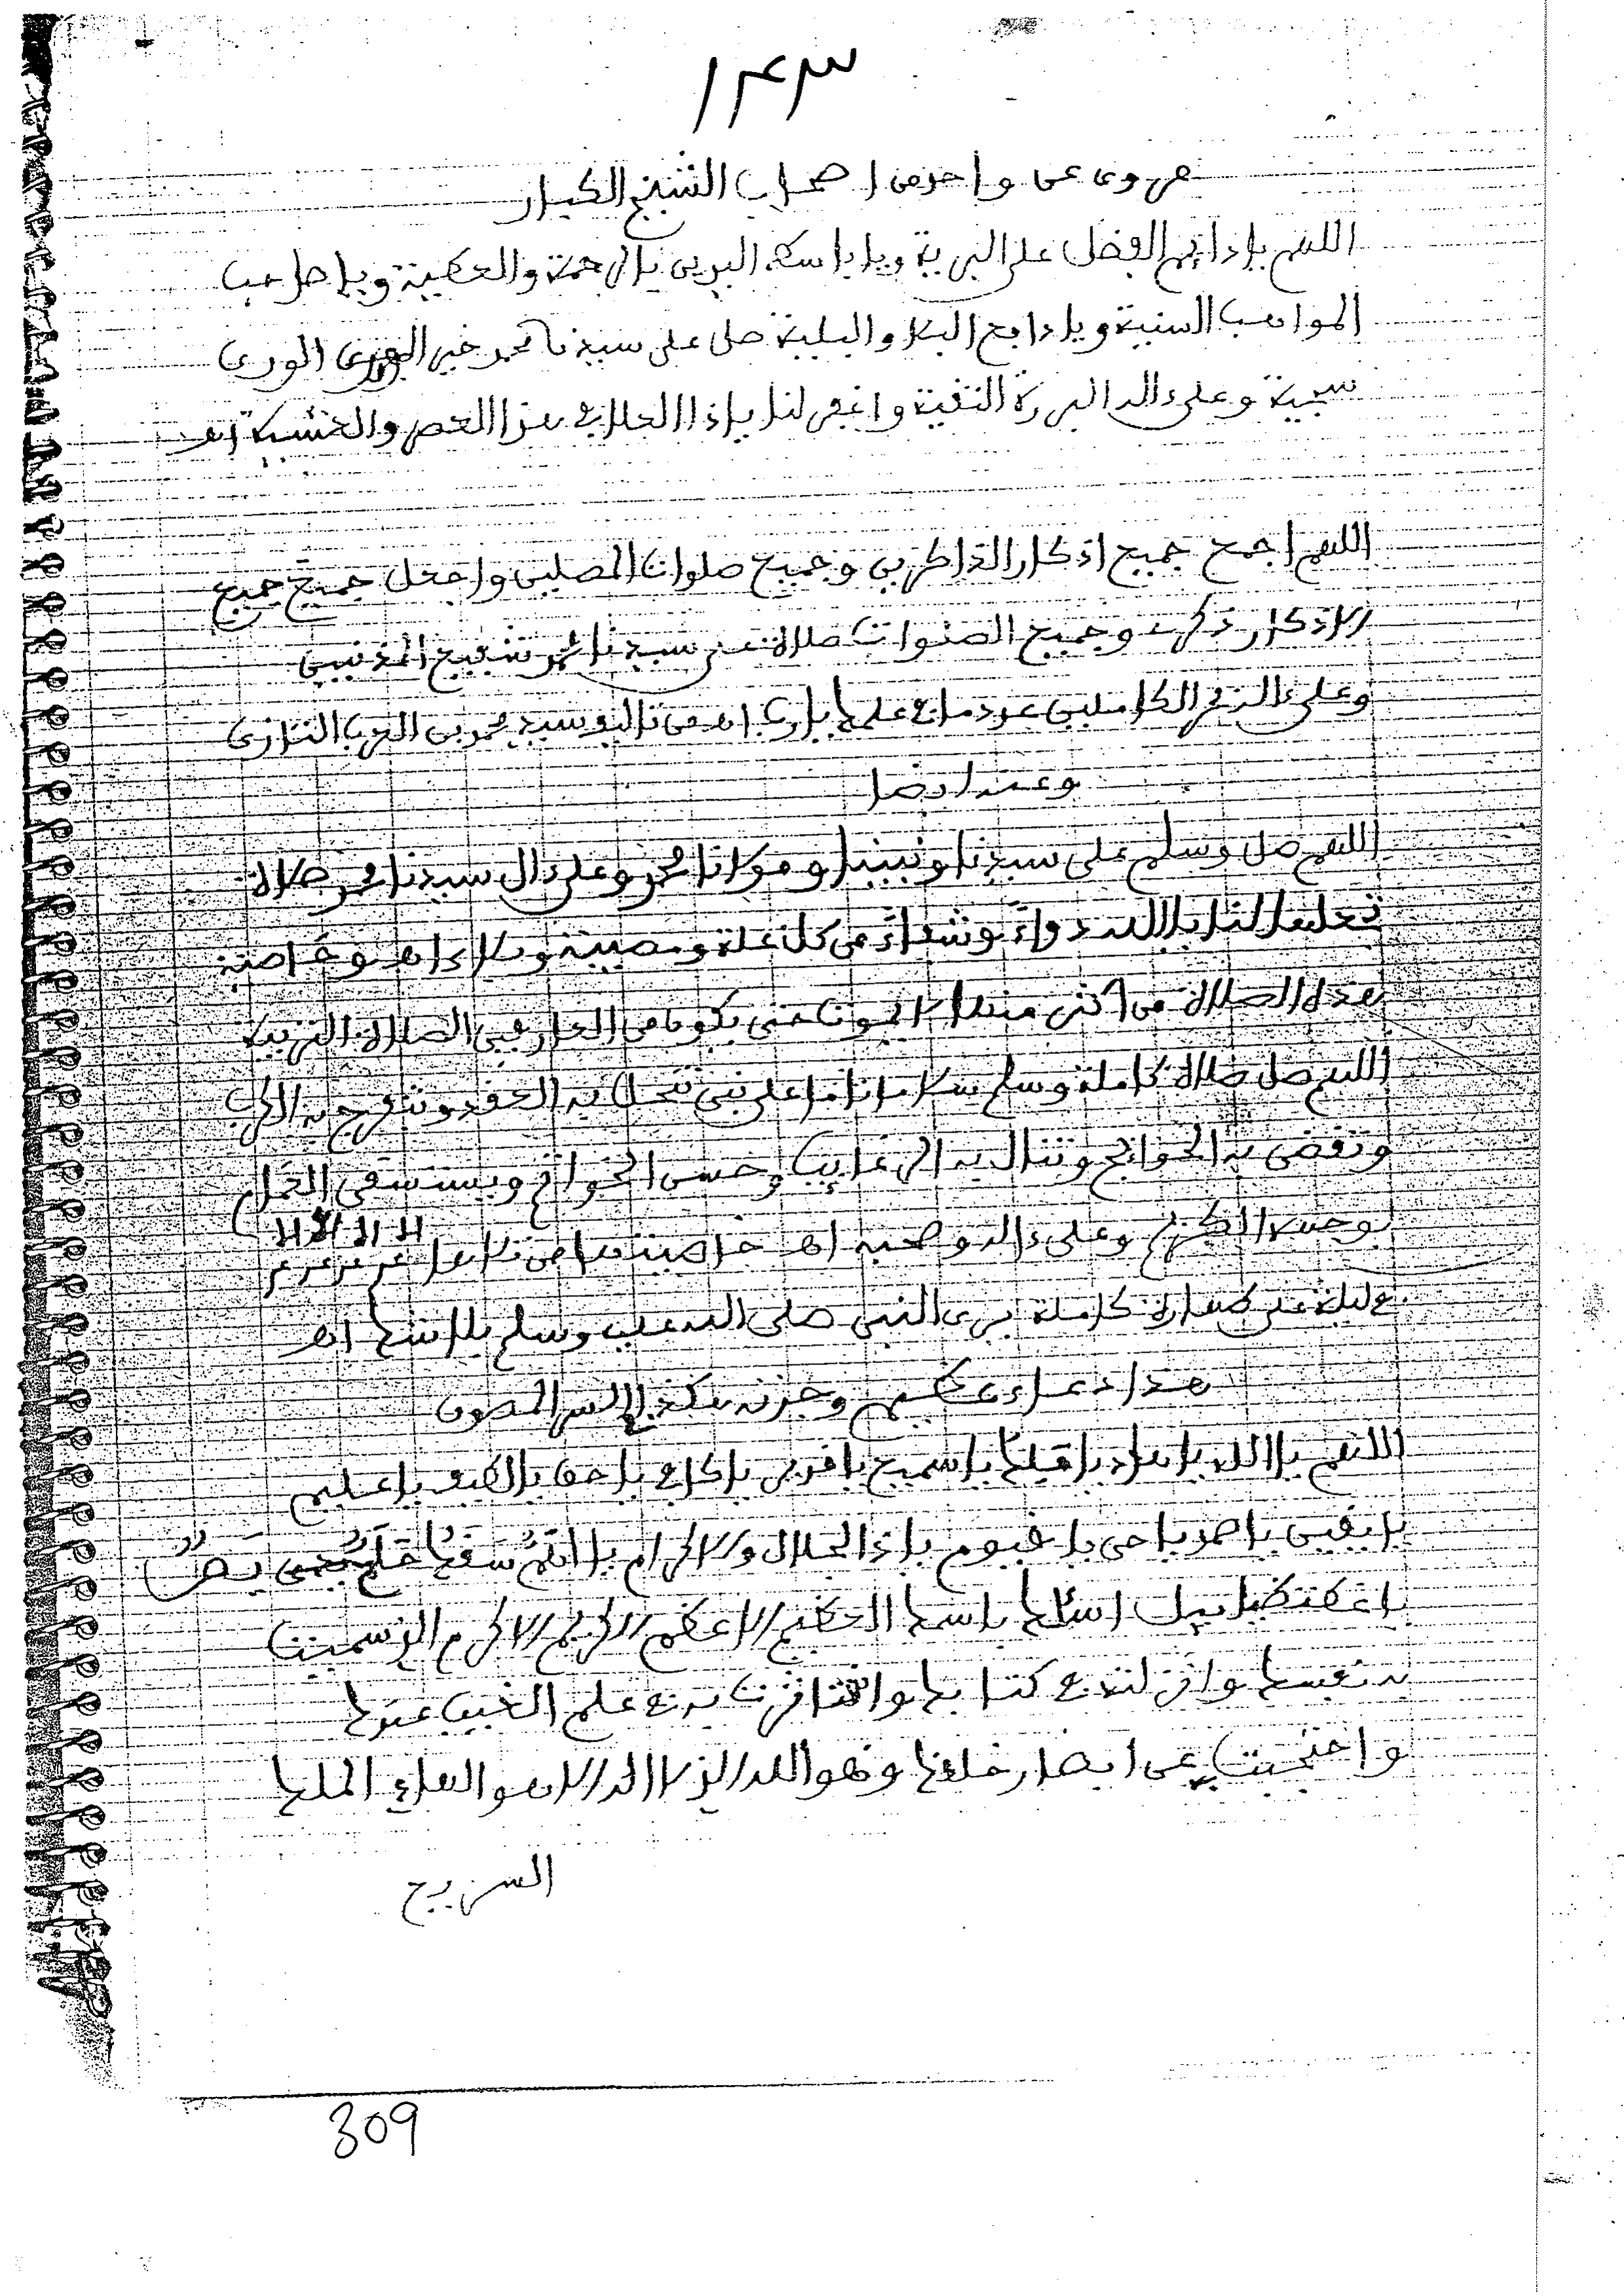 ١٤٣
مروى عن واحد من اصحاب الشيخ الكبار
اللهم يا دايم الفضل على البرية ويا باسط اليدين بالرحمة والعطية ويا صاحب
المواهب السنية ويا دافع البلا والبلية صل على سيدنا محمد خير الورى
سجية وعلى ءاله البررة النقية واغفر لنا يا ذا العلا في هذا العصر والعشية اهـ
اللهم اجمع جميع اذكار الذاكرين وجميع صلوات المصلين واجعل جميع جميع
الاذكار ذكرى وجميع الصلوات صلاة على سيدنا محمد شفيع المذنبين
وعلى ءاله الكاملين عدد ما في علمك يا رب اهـ من سيد محمد بن العرب التازى
وعنه ايضا
اللهم صل وسلم على سيدنا ونبينا ومولانا محمد وعلى ءال سيدنا محمد صلاة
تجعلها لنا يا الله دواء وشفاء من كل علة ومصيبة وبلاء اهـ وخاصية
هذه الصلاة من اكثر منها لا يموت حتى يكون من العارفين الصلاة النازية
اللهم صل صلاة كاملة وسلم سلاما تاما على نبى تنحل به العقد وتنفرج به الكرب
وتقضى به الحوائج وتنال به الرغايب وحسن الخواتم ويستسقى الغمام
بوجهه الكريم وعلى ءاله وصحبه اهـ خاصيتها من تلاها
في ليلة على طهارة كاملة يرى النبى صلى الله عليه وسلم بلا شك اهـ
هذا دعاء عظيم وحزنه بكنز السر المصون
اللهم يا الله يا هاد يا سميع يا قريب يا كافى يا حق يا لطيف يا عليم
يا صمد يا حى يا قيوم يا ذا الجلال والاكرام
اسئلك باسمك العظيم الاعظم الكريم الاكرم الذي سميت
به نفسك وانزلته في كتابك واستاثرت به في علم الغيب عندك
واحتجبت عن ابصار خلقك وهو الله الذى لا اله الا هو الملك
السريع
309